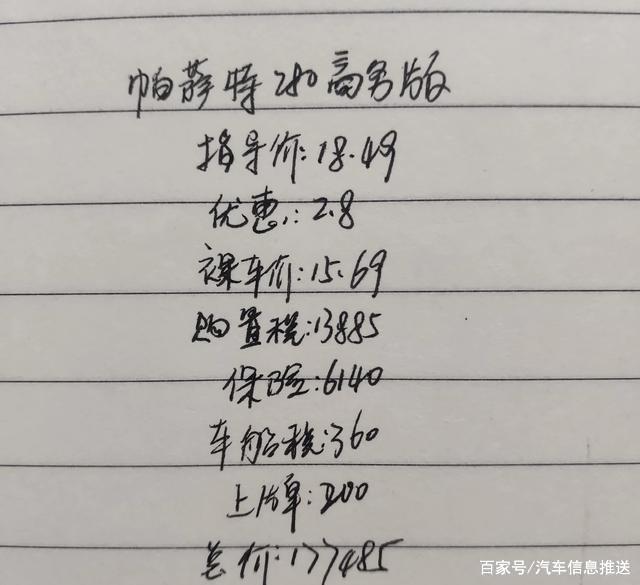 帕萨特280商务版
指导价:18.49
优惠:2.8
裸车价:15.69
购置税:13885
保险:6140
车船税:360
上牌:200
总价:177485
百家号/汽车信息推送